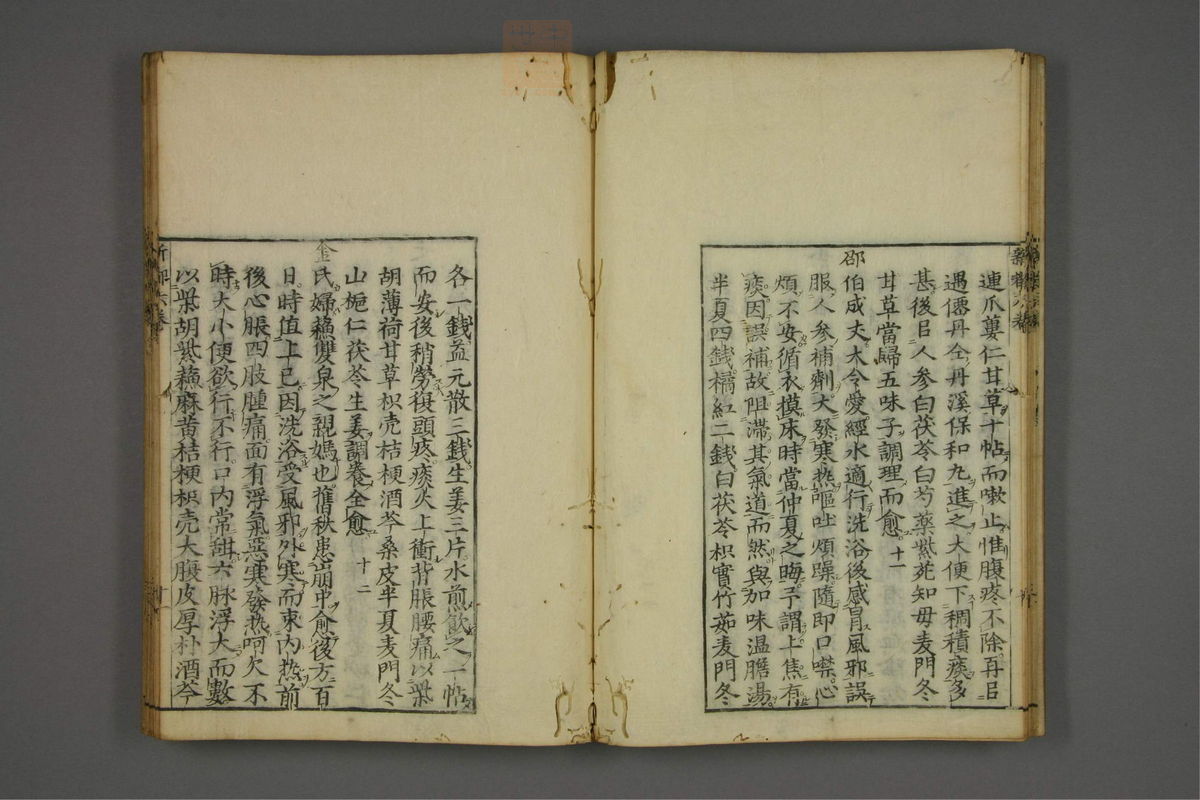 連爪蔞仁甘草十帖而嗽止惟腹疼不除再㠯
遇僊丹仝丹溪保和丸進之大便下稠積痰多
甚後㠯人参白茯苓白芍薬紫菀知母麦門冬
甘草當歸五味子調理而愈 十一
邵伯成丈夫令愛經水適行洗浴後感冐風邪誤
服人参補劑大發寒热嘔吐煩躁隨即口噤心
煩不安循衣摸床時當仲夏之晦予謂上焦有
痰因誤補故阻滞其氣道而然與加味温膽湯
半夏四銭橘紅二銭白茯苓枳實竹茹麦門冬
各一銭益元散三銭生姜三片水煎飲之一帖
而安後稍勞復頭疼痰火上衝背脹腰痛以柴
胡薄荷甘草枳壳桔梗酒芩桑皮半夏麦門冬
山梔仁茯苓生姜調養全愈 十二
金氏婦藕雙泉之親媽也舊秋患崩中愈後方百
日時值上巳因洗浴受風邪外寒而束内热前
後心脹四肢腫痛面有浮氣惡寒發热呵欠不
時大小便欲行不行口内常甜六脉浮大而數
以柴胡紫蘓麻黄桔梗枳壳大腹皮厚朴酒芩